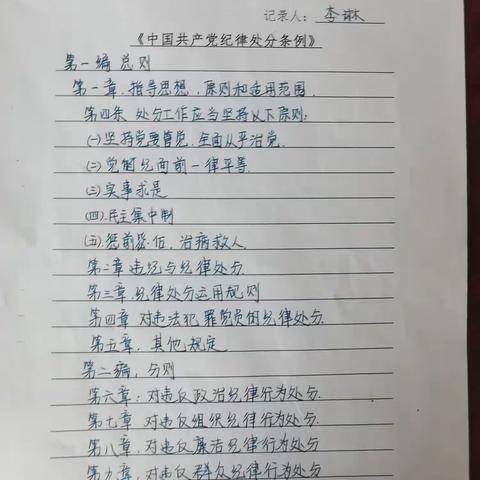 记录人: 李琳
《中国共产党纪律处分条例》
第一编 总则
第一章.指导思想.原则和适用范围.
第四条 处分工作应当坚持以下原则:
(一)坚持党要管党.全面从严治党.
(二)党的纪律面前一律平等.
(三)实事求是
(四)民主集中制
(五)惩前毖后.治病救人.
第二章违纪与纪律处分.
第三章.纪律处分运用规则
第四章 对违法犯罪党员的纪律处分.
第五章.其他规定
第二编.分则
第六章:对违反政治纪律行为处分.
第七章 对违反组织纪律行为处分.
第八章.对违反廉洁纪律行为处分
第九章.对违反群众纪律行为处分